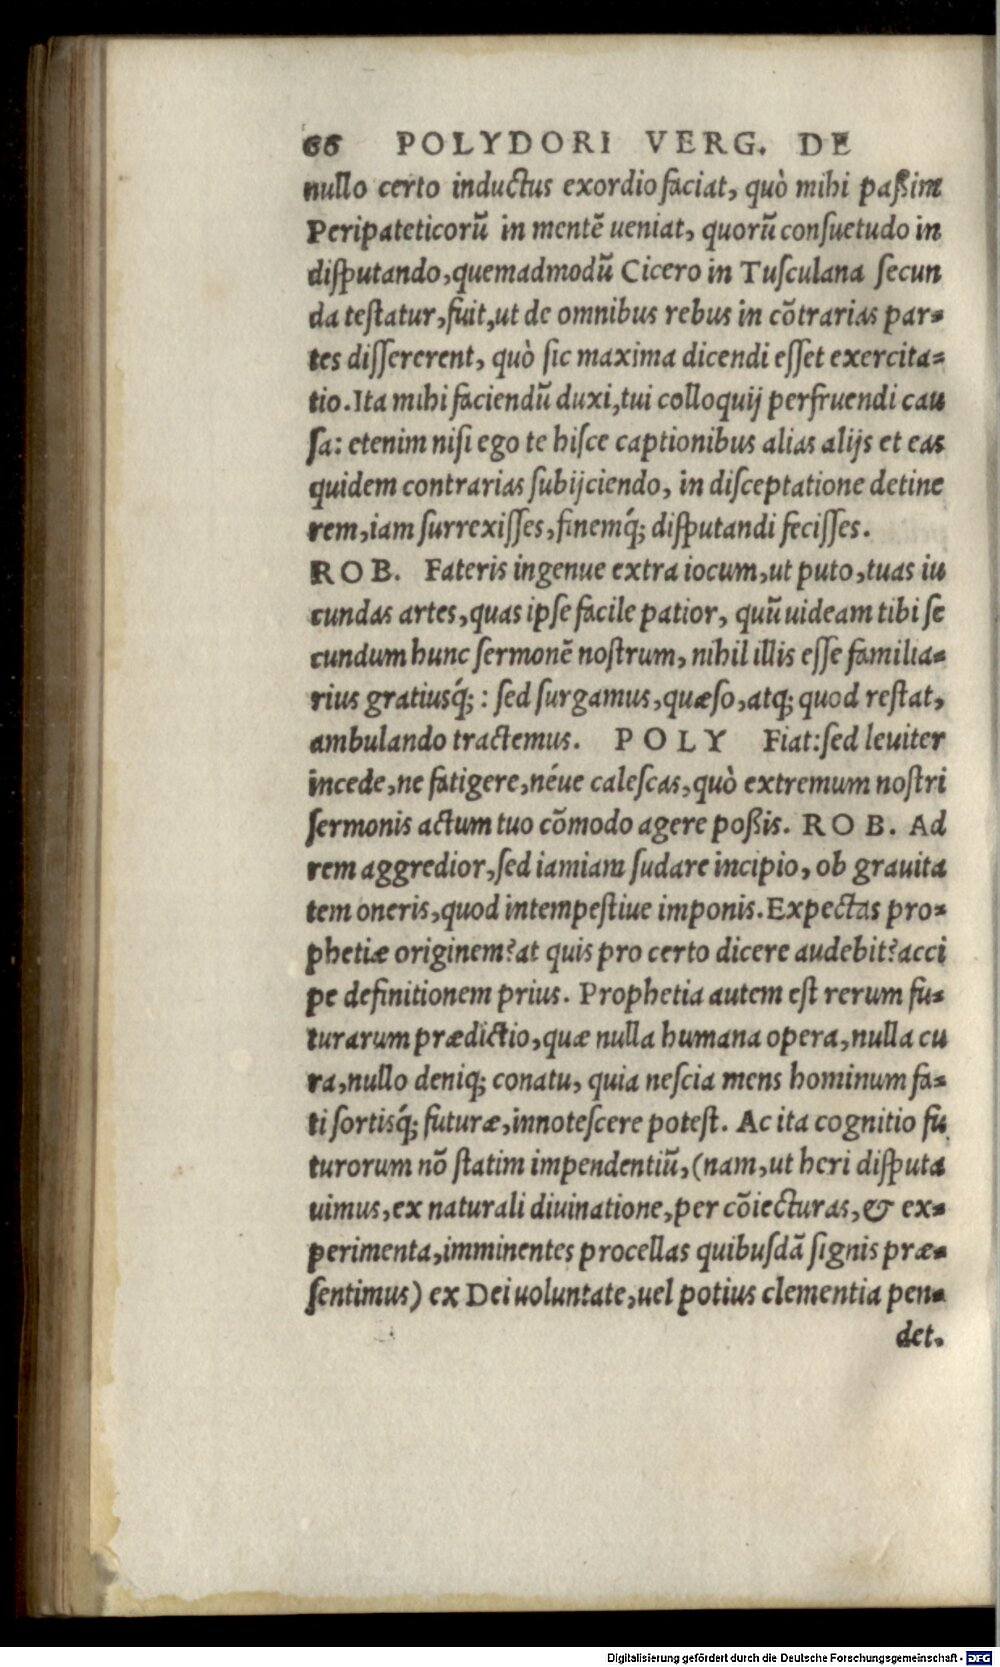 66 POLYDORI VERG. DE
nullo certo inductus exordio faciat, quò mihi paßim
Peripateticorũ in mentẽ ueniat, quorũ consuetudo in
disputando, quemadmodũ Cicero in Tusculana secun
da testatur, fuit, ut de omnibus rebus in cõtrarias par-
tes dissererent, quò sic maxima dicendi esset exercita-
tio. Ita mihi faciendũ duxi, tui colloquij perfruendi cau
sa: etenim nisi ego te hisce captionibus alias alijs et eas
quidem contrarias subijciendo, in disceptatione detine
rem, iam surrexisses, finemq́; disputandi fecisses.
ROB. Fateris ingenue extra iocum, ut puto, tuas iu
cundas artes, quas ipse facile patior, quũ uideam tibi se
cundum hunc sermonẽ nostrum, nihil illis esse familia-
rius gratiusq́; : sed surgamus, quæso, atq; quod restat,
ambulando tractemus. POLY Fiat: sed leuiter
incede, ne fatigere, néue calescas, quò extremum nostri
sermonis actum tuo cõmodo agere poßis. ROB. Ad
rem aggredior, sed iamiam sudare incipio, ob grauita
tem oneris, quod intempestiue imponis. Expectas pro-
phetiæ originem? at quis pro certo dicere audebit? acci
pe definitionem prius. Prophetia autem est rerum fu-
turarum prædictio, quæ nulla humana opera, nulla cu
ra, nullo deniq; conatu, quia nescia mens hominum fa-
ti sortisq́; futuræ, innotescere potest. Ac ita cognitio fu
turorum nõ statim impendentiũ, (nam, ut heri disputa
uimus, ex naturali diuinatione, per cõiecturas, & ex-
perimenta, imminentes procellas quibusdã signis præ-
sentimus) ex Dei uoluntate, uel potius clementia pen-
det.
Digitalisierung gefördert durch die Deutsche Forschungsgemeinschaft - DFG